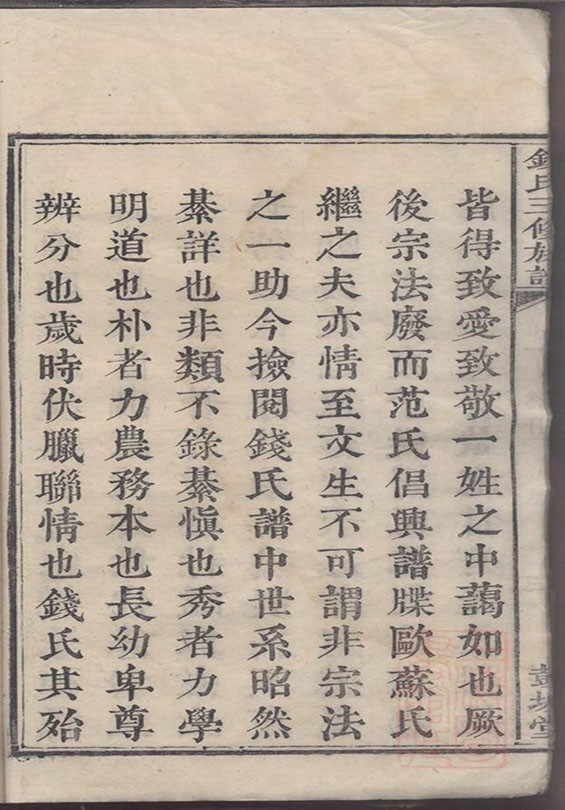 錢氏三修族譜
皆得致愛致敬一姓之中藹如也厥
後宗法廢而范氏倡興譜牒歐蘇氏
繼之夫亦情至文生不可謂非宗法
之一助今撿閱錢氏譜中世系昭然
綦詳也非類不錄綦慎也秀者力學
明道也朴者力農務本也長幼卑尊
辨分也歲時伏臘聯情也錢氏其殆